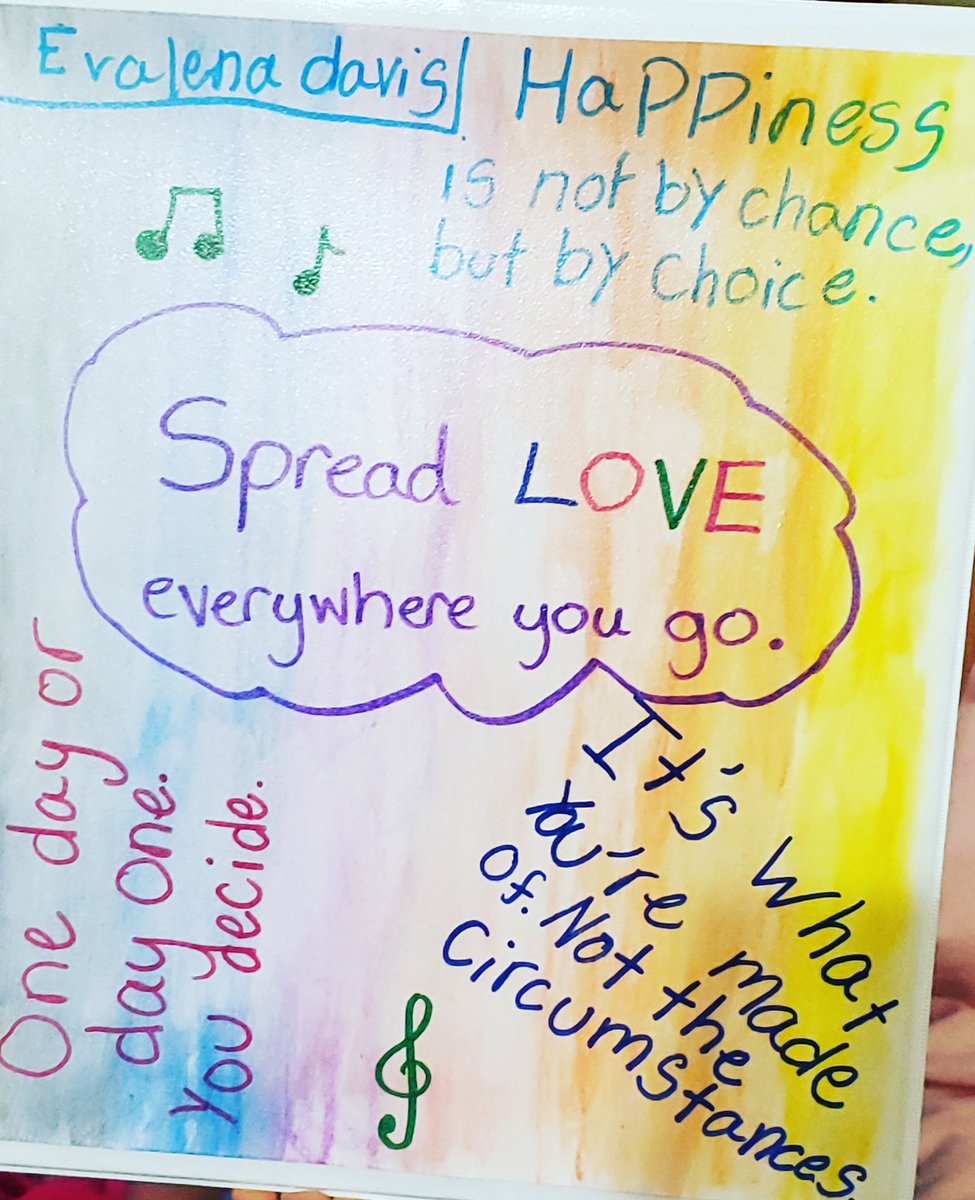 Evalena davis
Happiness
is not by chance,
but by choice.
Spread LOVE
everywhere you go.
One day or
day one.
You decide.
It's what
You're made
of. Not the
circumstances